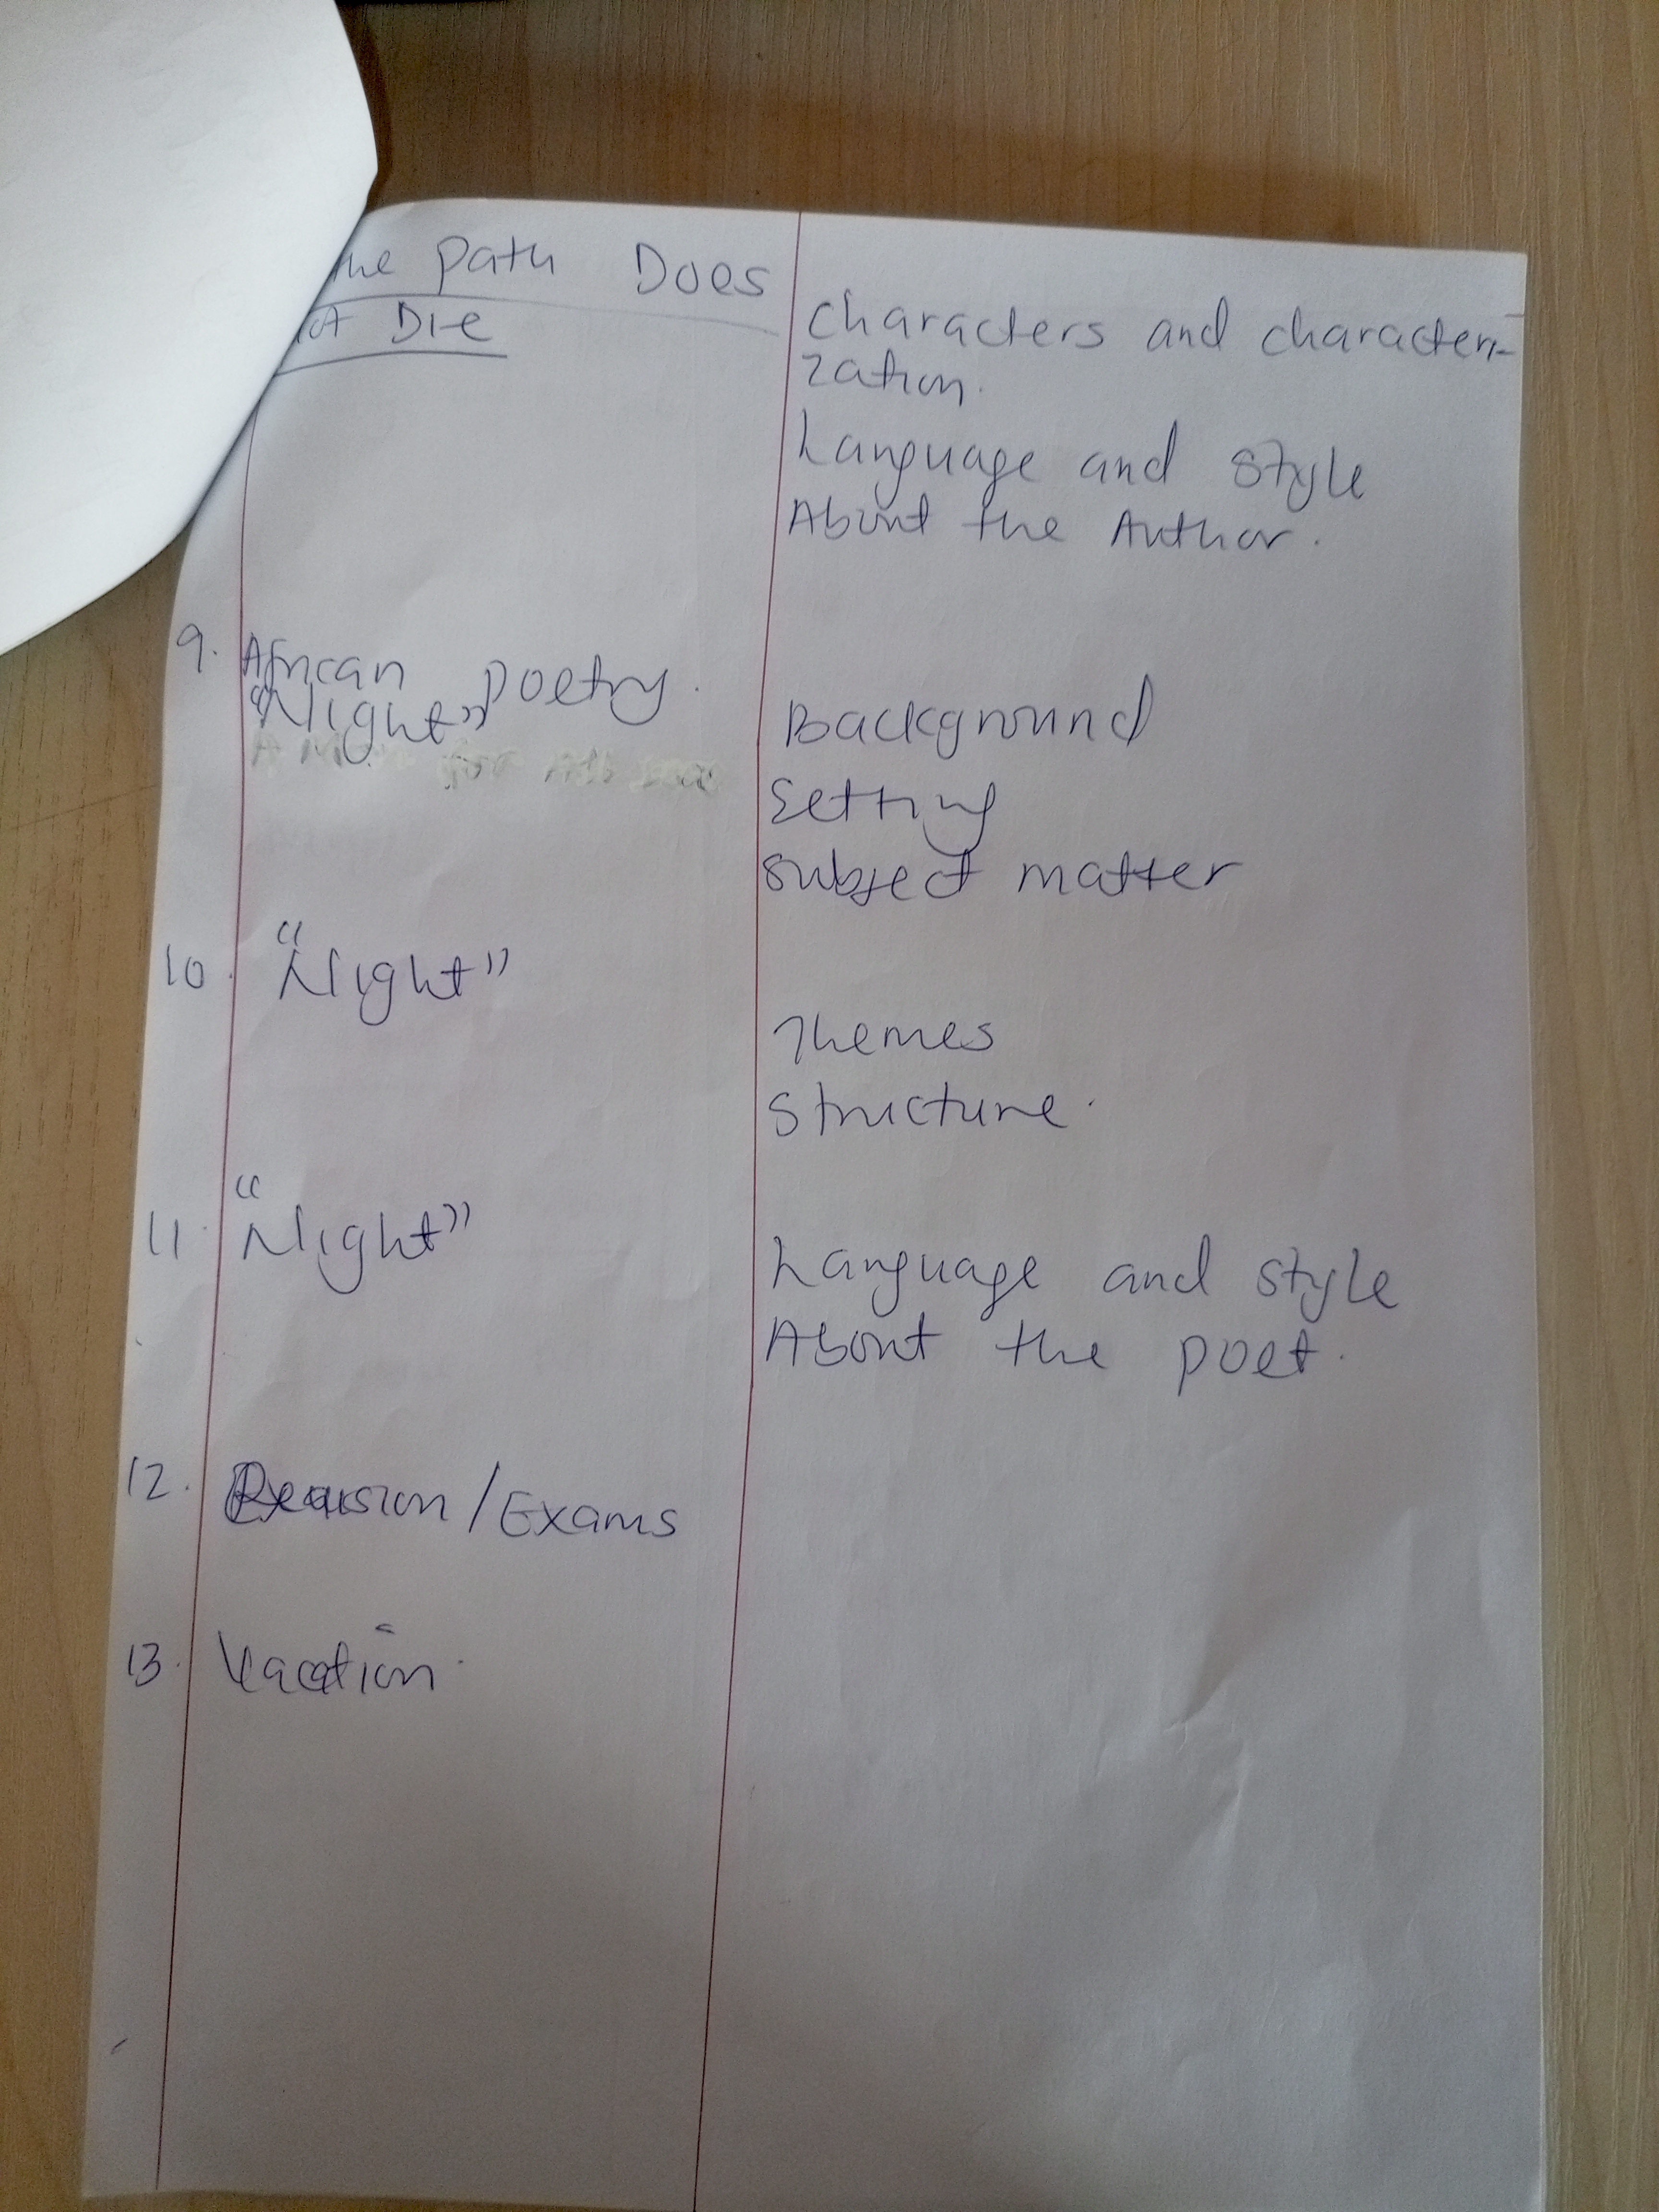 the Path Does
Die
Characters and characteri-
zation.
Language and style
About the Author.
9. African Poetry.
"Night"
Background
Setting
Subject matter
10. "Night"
Themes
Structure.
11. "Night"
Language and style
About the poet.
12. Revision/Exams
13. Vacation.